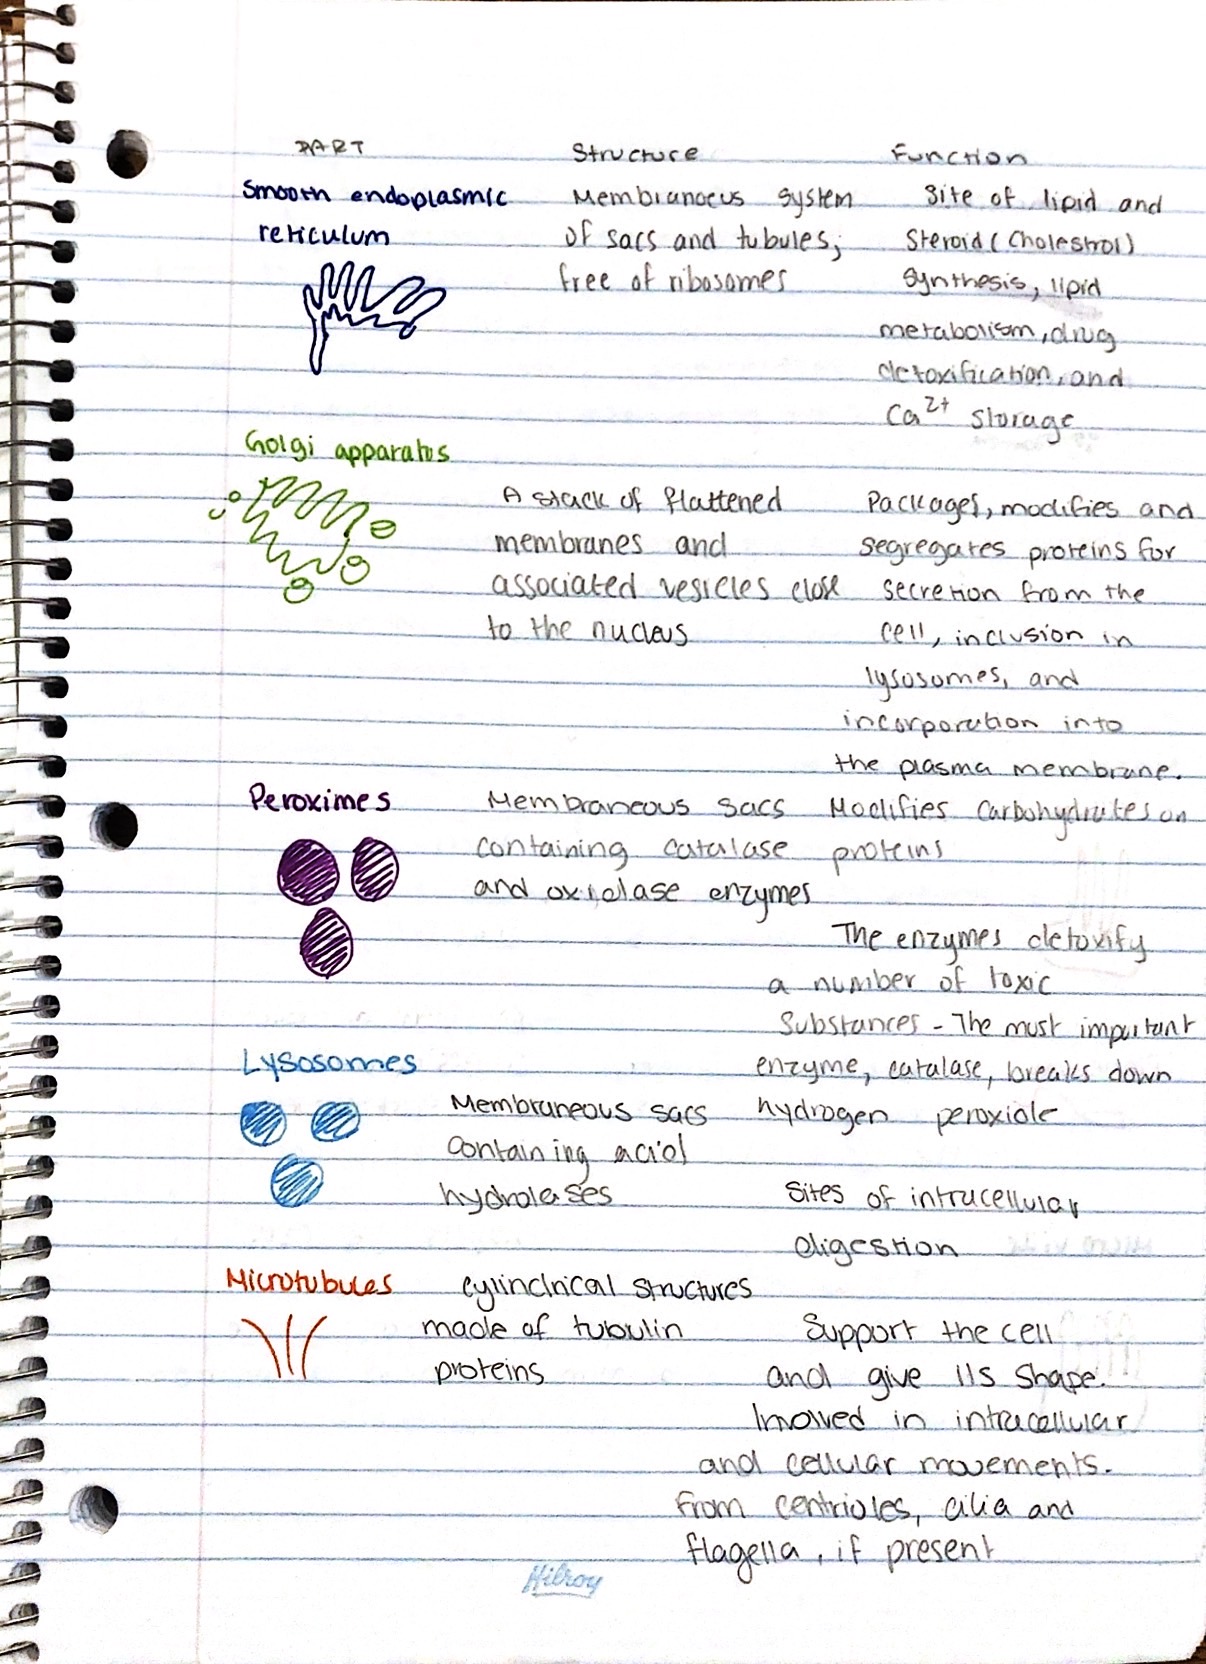 PART Structure Function
Smooth endoplasmic Membraneous system Site of lipid and
reticulum of sacs and tubules; Steroid (Cholestrol)
free of ribosomes synthesis, lipid
metabolism, drug
detoxification, and
Ca2+ storage
Golgi apparatus
A stack of flattened Packages, modifies and
membranes and segregates proteins for
associated vesicles close secretion from the
to the nucleus cell, inclusion in
lysosomes, and
incorporation into
the plasma membrane.
Peroximes Membraneous sacs Modifies carbohydrates on
containing catalase proteins
and oxidase enzymes
The enzymes detoxify
a number of toxic
Substances - The most important
Lysosomes enzyme, catalase, breaks down
Membraneous sacs hydrogen peroxide
containing acid
hydrolases Sites of intracellular
digestion
Microtubules cylindrical structures
made of tubulin Support the cell
proteins and give its shape.
Involved in intracellular
and cellular movements.
From centrioles, cilia and
flagella, if present
Hilroy